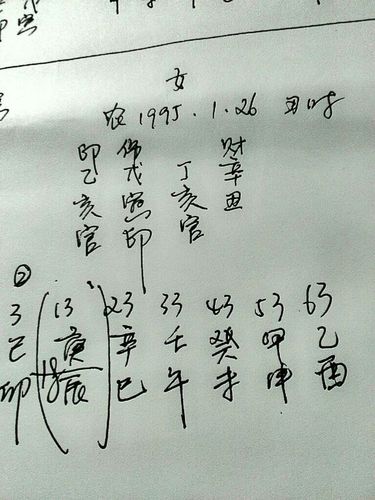 寅
女
农 1995.1.26 丑时
印 伤 财
乙 戊 丁 辛
亥 寅 亥 丑
官 印 官
②
3 13 23 33 43 53 63
己 庚 辛 壬 癸 甲 乙
卯 辰 巳 午 未 申 酉